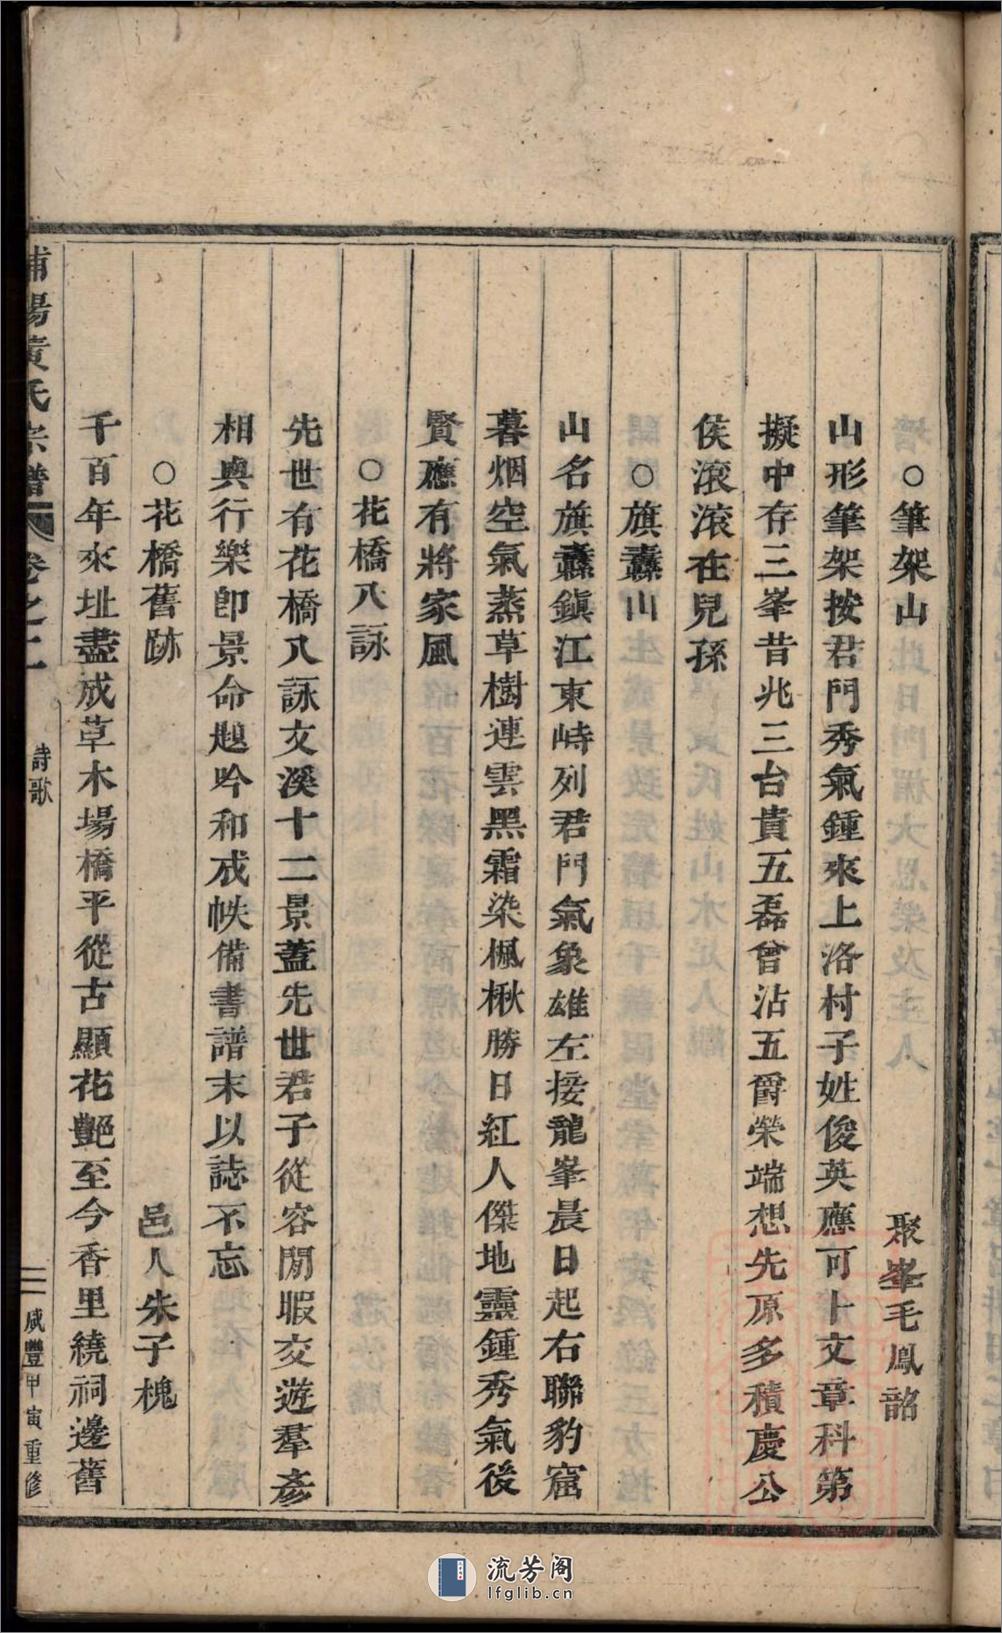 ○筆架山
聚峯毛鳳韶
山形筆架按君門秀氣鍾來上洛村子姓俊英應可卜文章科第
擬中存三峯昔兆三台貴五磊曾沾五爵榮端想先原多積慶公
侯滾滾在兒孫
○旗纛山
山名旗纛鎮江東峙列君門氣象雄左接龍峯晨日起右聯豹窟
暮烟空氣蒸草樹連雲黑霜染楓楸勝日紅人傑地靈鍾秀氣後
賢應有將家風
○花橋八詠
先世有花橋八詠文溪十二景蓋先世君子從容閒暇交遊羣彥
相與行樂卽景命題吟和成帙備書譜末以誌不忘
○花橋舊跡
邑人朱子槐
千百年來址盡成草木場橋平從古顯花艷至今香里繞祠邊舊
浦陽黃氏宗譜
卷之二
詩歌
三
咸豐甲寅重修
流芳阁
lfglib.cn